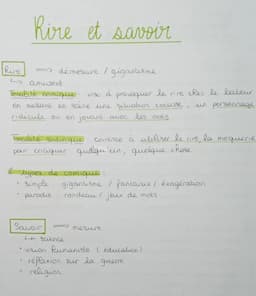 Rire et savoir
Rire → démesure / gigantisme
↳ amusent
Tonalité comique vise à provoquer le rire chez le lecteur
en mettant en scène une situation cocasse, un personnage
ridicule ou en jouant avec les mots
Tonalité satirique consiste à utiliser le rire, la moquerie
pour critiquer quelqu'un, quelque chose.
types de comique
• simple gigantisme / fantaisie / exagération
• parodie / jeux de mots
Savoir → mesure
↳ science
• vision humaniste (éducation)
• réflexion sur la guerre
• religion